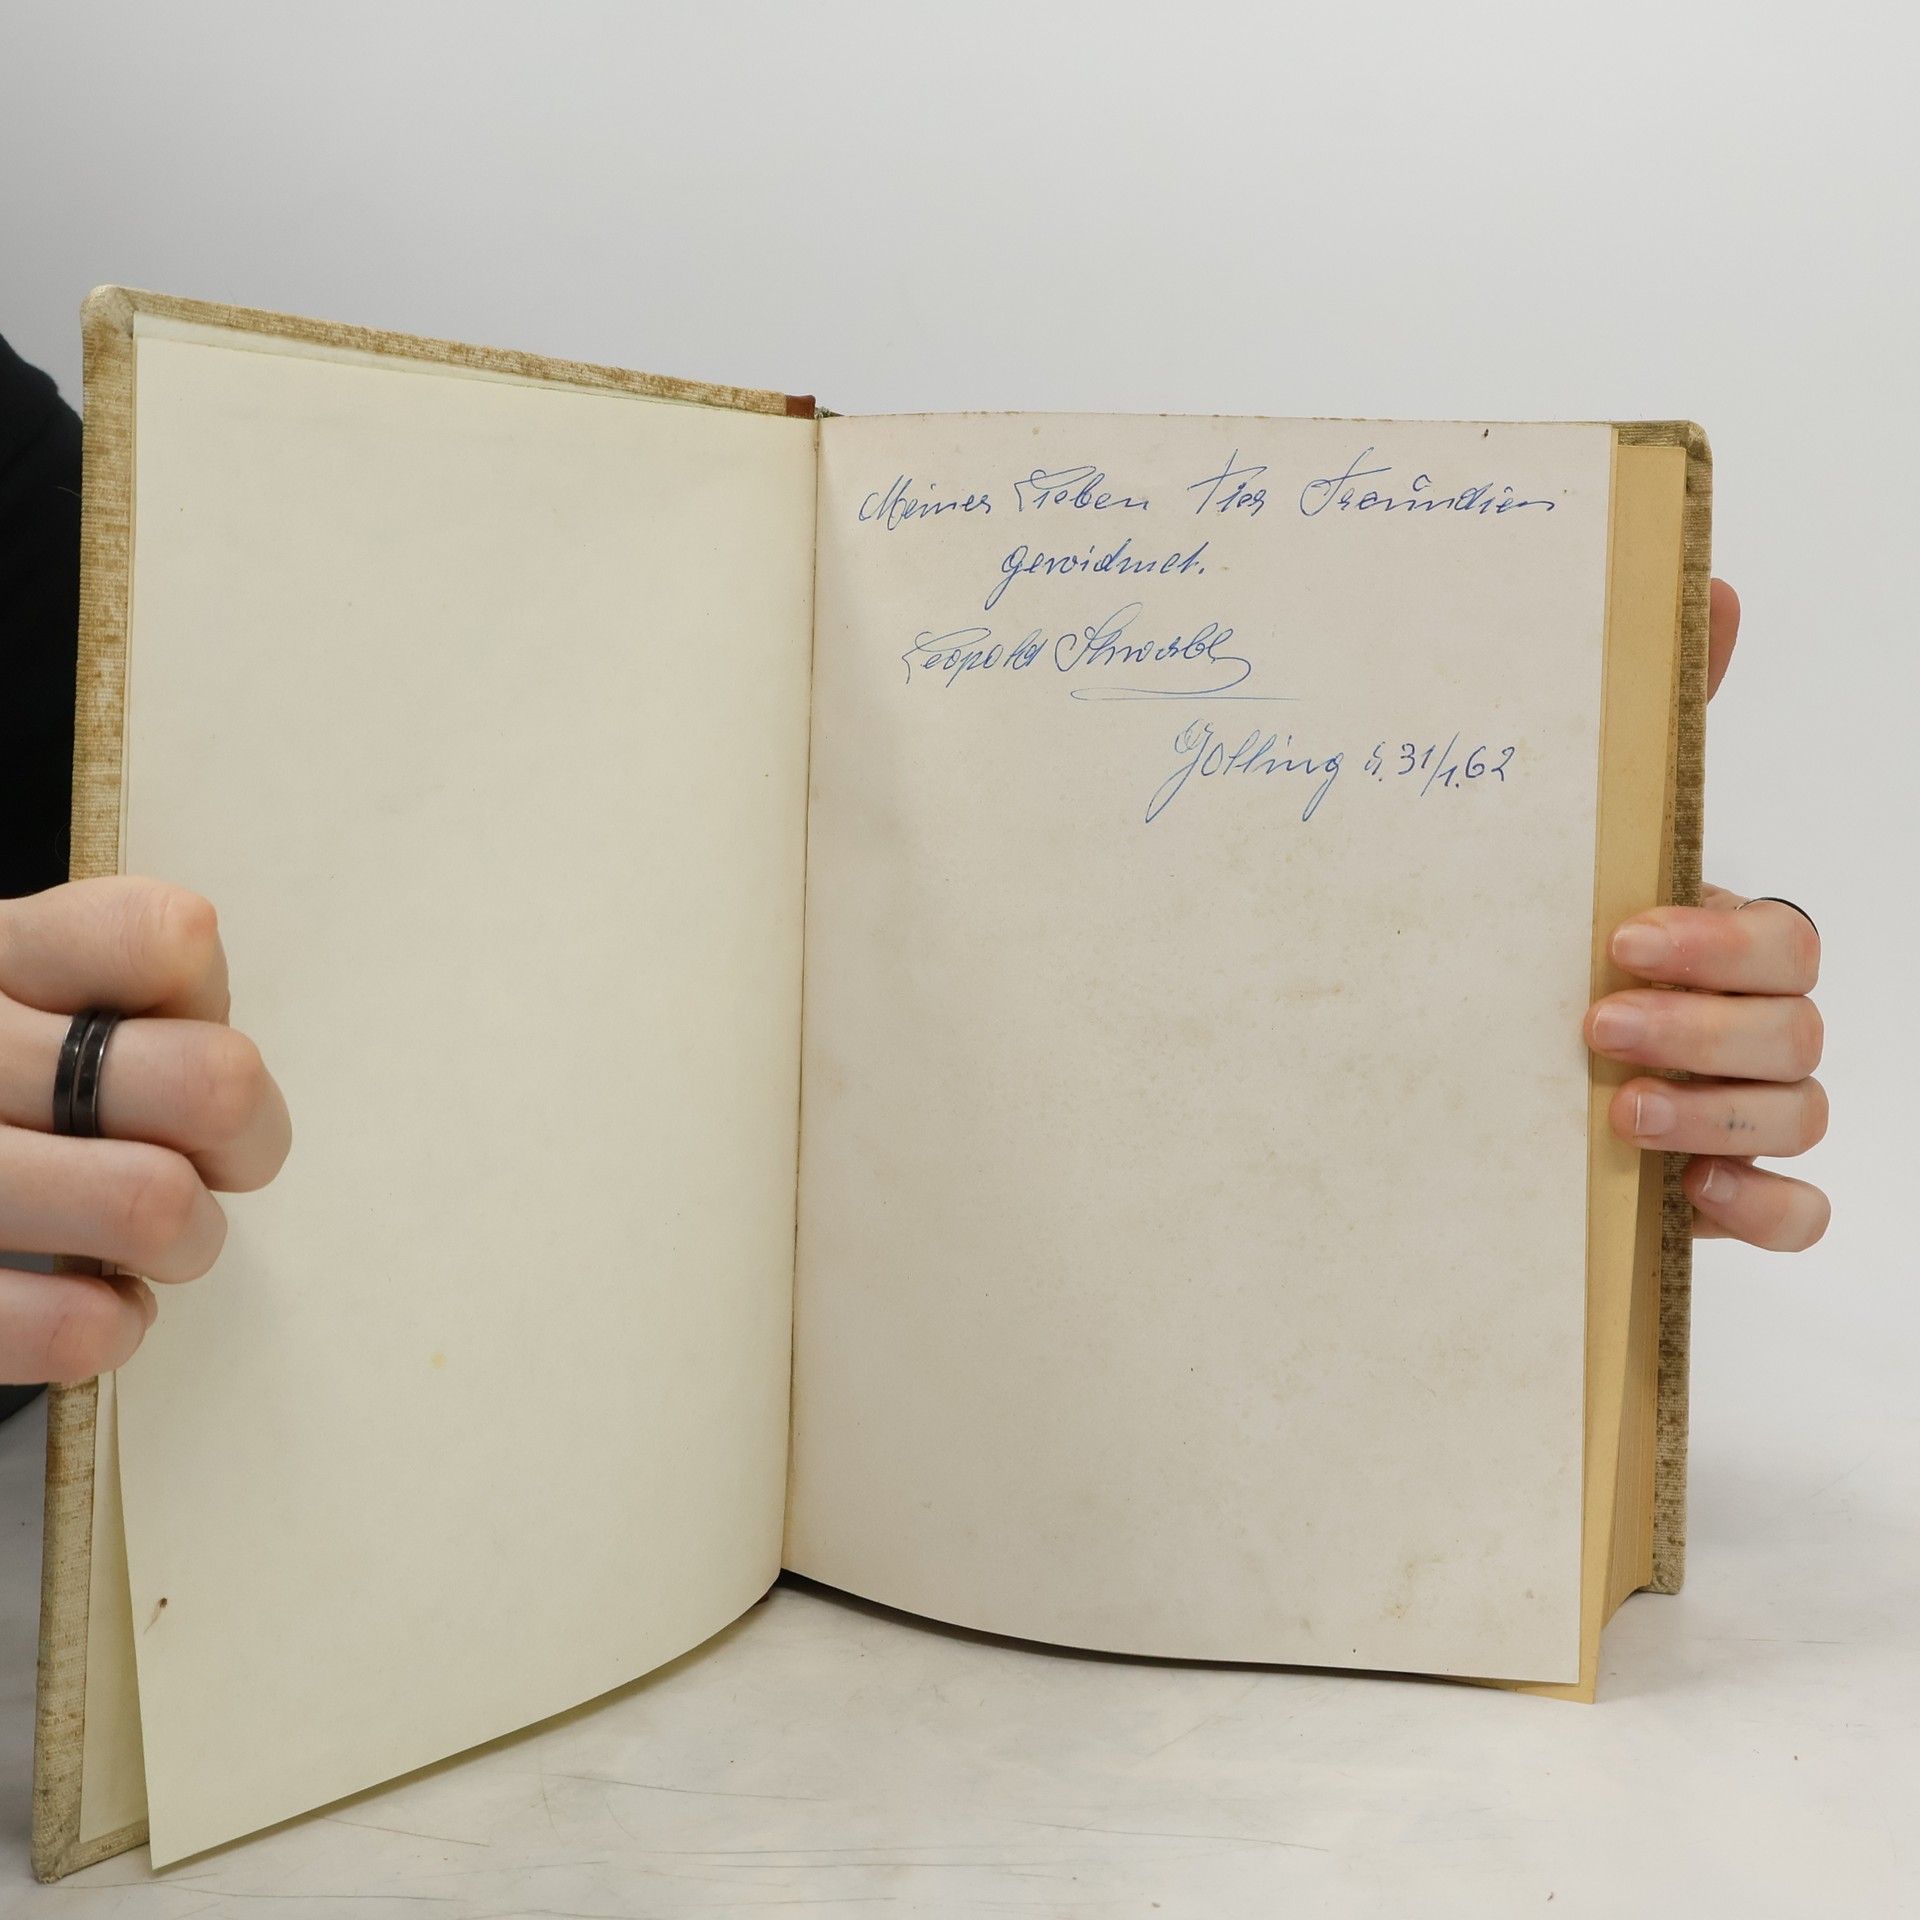 Meiner Lieben Tier Freundien
gewidmet.
Leopold
Golling d. 31/1.62